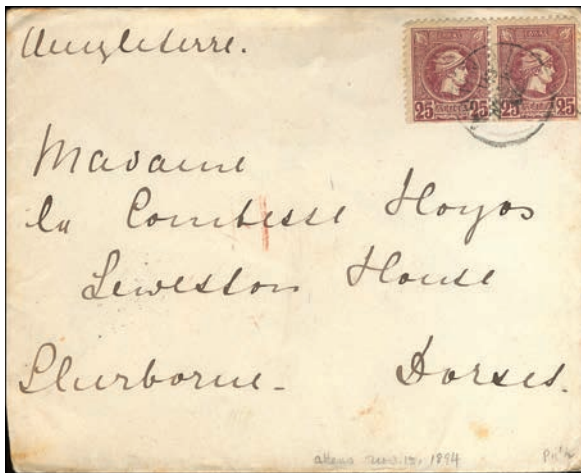 Angleterre.
25 25 25 25
Madame
la Comtesse Hoyos
Leweston House
Sherborne - Dorset.
athens nov. 15, 1894